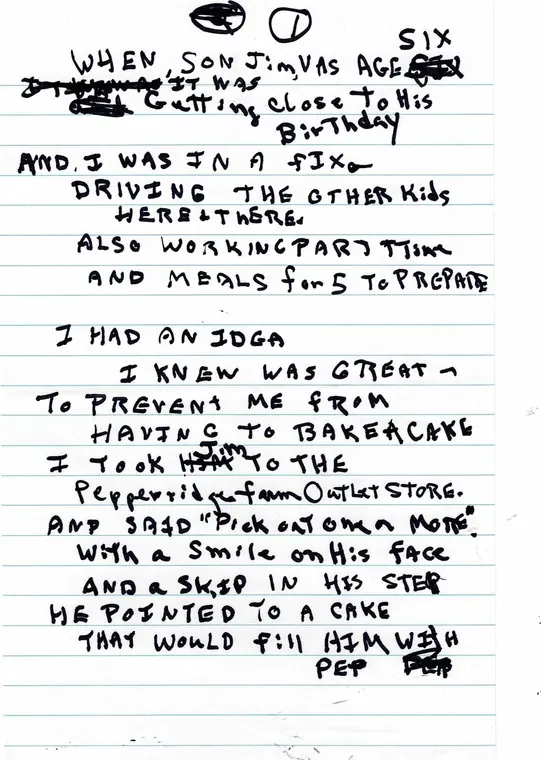 1
SIX
WHEN, SON Jim, WAS AGE
IT WAS
Gutting close To His
BirThday
AND, I WAS IN A fIX.
DRIVING THE OTHER Kids
HERE & THERE.
ALSO WORKING PART TIME
AND MEALS for 5 To PREPARE
I HAD AN IDEA
I KNEW WAS GREAT -
To PREVENT ME FROM
HAVING TO BAKE A CAKE
Jim
I TOOK TO THE
Pepperridge farm OUTLET STORE.
AND SAID "Pick out one or MORE".
With a Smile on His FACE
AND a SKIP IN HIS STEP
HE POINTED TO A CAKE
THAT WOULD fill HIM WITH
PEP